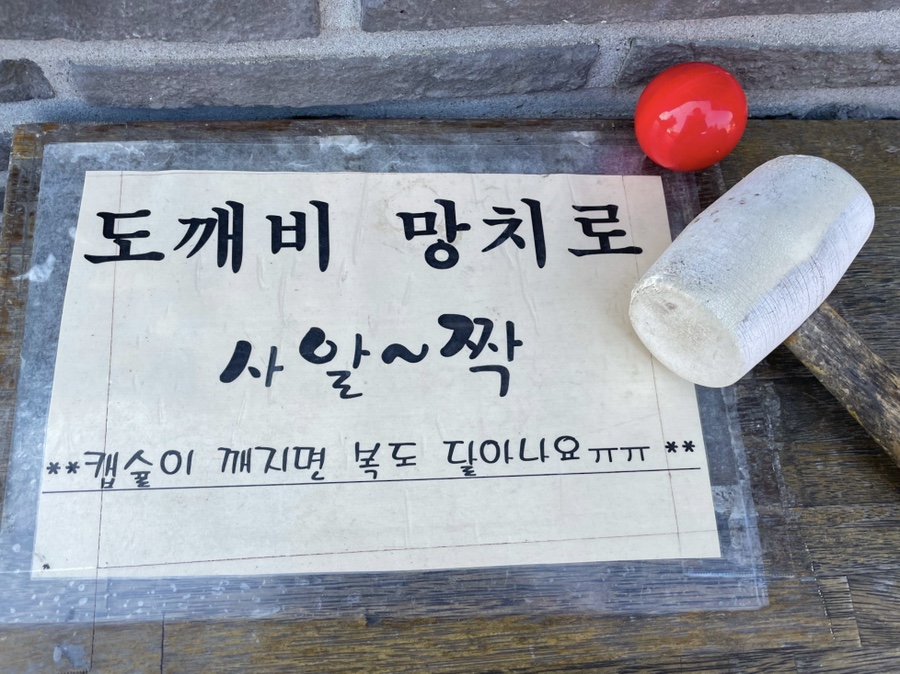 도깨비 망치로
사알~짝
**캡슐이 깨지면 복도 달아나요ㅠㅠ **